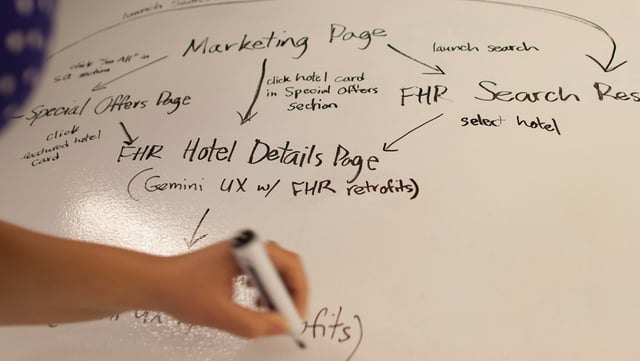 launch
Marketing Page
launch search
click "See All" in
section
click hotel card
in Special Offers
section
Special Offers Page
FHR Search Res
click
featured hotel
card
select hotel
FHR Hotel Details Page
(Gemini UX w/ FHR retrofits)
UX
ofits)